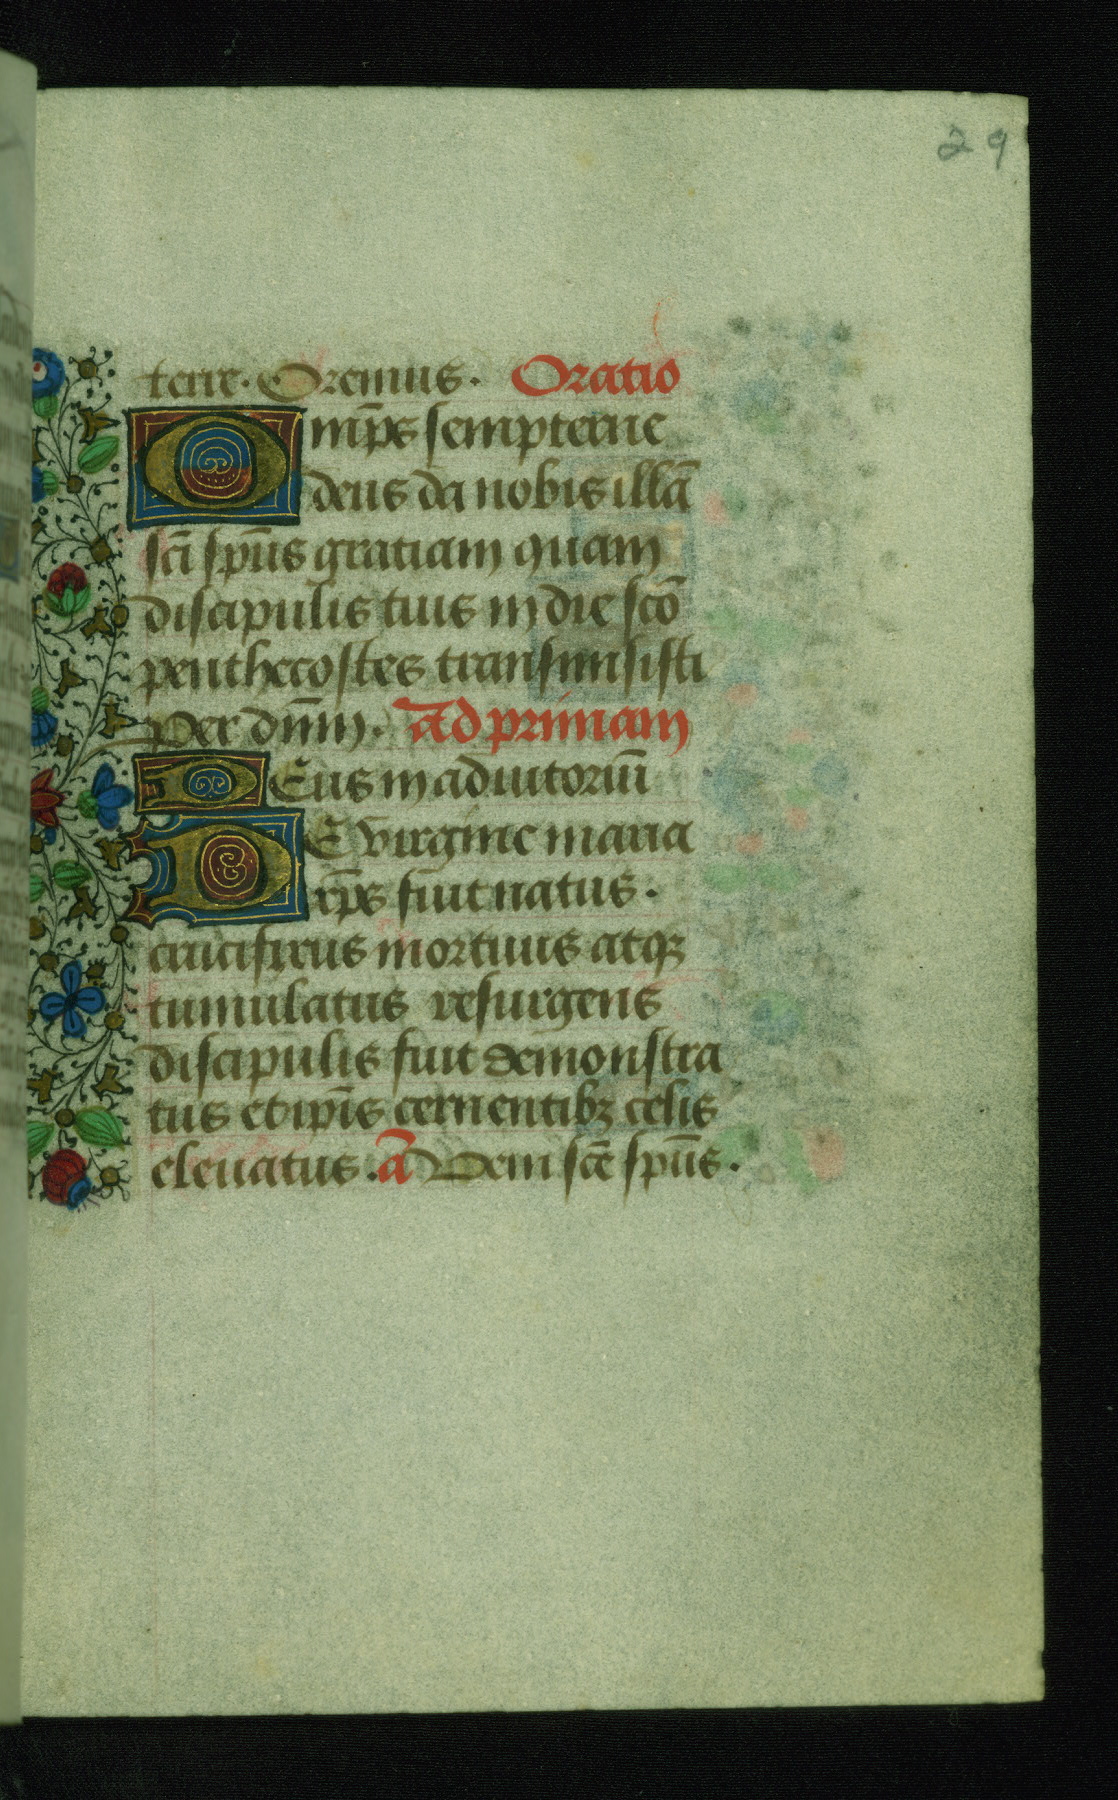 29
terre. Oremus. Oratio
Omp̄s sempterne
deus da nobis illā
sc̄i sp̄us gratiam quam
discipulis tuis in die scō
penthecostes transmisisti
Per dn̄m. ad primam
DEus in adiutoriū
DE virgine maria
xp̄s fuit natus.
crucifixus mortuus atqꝫ
tumulatus resurgens
discipulis fuit demonstra
tus et ip̄is cernentibꝫ celis
eleuatus. a Dem sc̄e sp̄us.